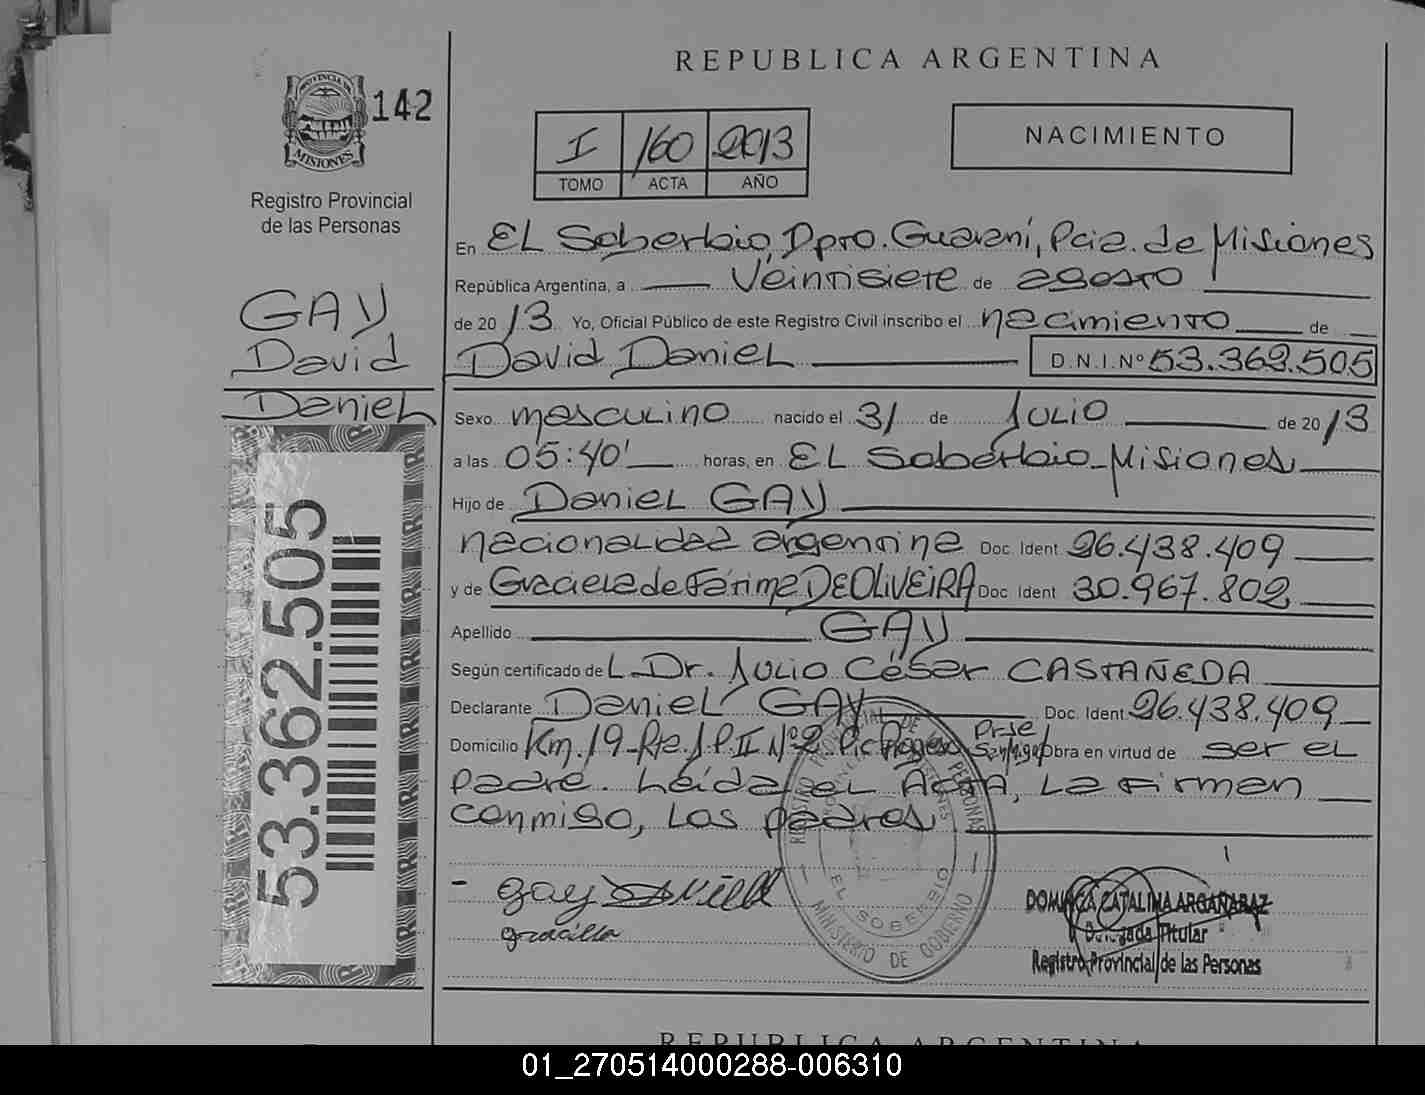 REPUBLICA ARGENTINA
PROVINCIA DE
MISIONES
142
Registro Provincial
de las Personas
I 160 2013
TOMO ACTA AÑO
NACIMIENTO
GAY
David
Daniel
53.362.505
En EL Soberbio, Dpto. Guaraní, Pcia. de Misiones
República Argentina, a Veintisiete de agosto
de 2013 Yo, Oficial Público de este Registro Civil inscribo el nacimiento de
David Daniel D.N.I.Nº 53.362.505
Sexo masculino nacido el 31 de JULIO de 2013
a las 05:40' horas, en EL Soberbio_Misiones
Hijo de Daniel GAY
nacionalidad argentina Doc. Ident. 26.438.409
y de Graciela de Fátima DE OLIVEIRA Doc Ident 30.967.802
Apellido GAY
Según certificado del Dr. Julio César CASTAÑEDA
Declarante Daniel GAY Doc. Ident. 26.438.409
Domicilio Km. 19-Rta. Obra en virtud de ser el
padre. Leída el Acta, la firman
conmigo, los padres
gay
graciella
REGISTRO PROVINCIAL DE LAS PERSONAS
MINISTERIO DE GOBIERNO
EL SOBERBIO
DOMINGA CATALINA ARGAÑARAZ
Delegada Titular
Registro Provincial de las Personas
REPUBLICA ARGENTINA
01_270514000288-006310